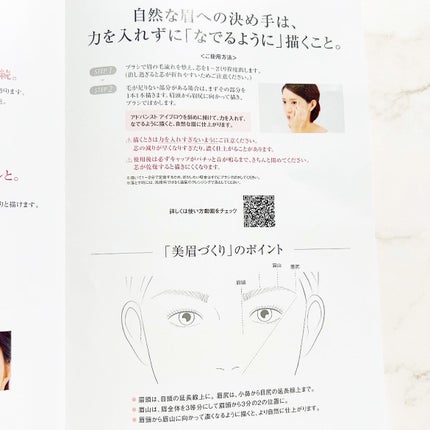 自然な眉への決め手は、
力を入れずに「なでるように」描くこと。
<ご使用方法>
STEP 1
ブラシで眉の毛流れを整え、芯を1~2ミリ程度出します。
(出し過ぎると芯が折れやすいためご注意ください。)
STEP 2
毛が足りない部分がある場合は、まずその部分を
1本1本描きます。眉頭から眉尻に向かって描き、
ブラシでぼかします。
アドバンスト アイブロウを斜めに傾けて、力を入れず、
なでるように描くと、自然な眉に仕上がります。
描くときは力を入れすぎないようにご注意ください。
芯の減りが早くなりすぎたり、濃く仕上がることがあります。
使用後は必ずキャップがパチッと音が鳴るまで、きちんと閉めてください。
芯が乾燥すると描きにくくなります。
詳しくは使い方動画をチェック
「美眉づくり」のポイント
眉頭
眉山
眉尻
眉頭は、目頭の延長線上に。眉尻は、小鼻から目尻の延長線上まで。
眉山は、眉全体を3等分にして眉頭から3分の2の位置に。
眉頭から眉山に向かって濃くなるように描くと、より自然に仕上がります。
続。
と。
と描けます。